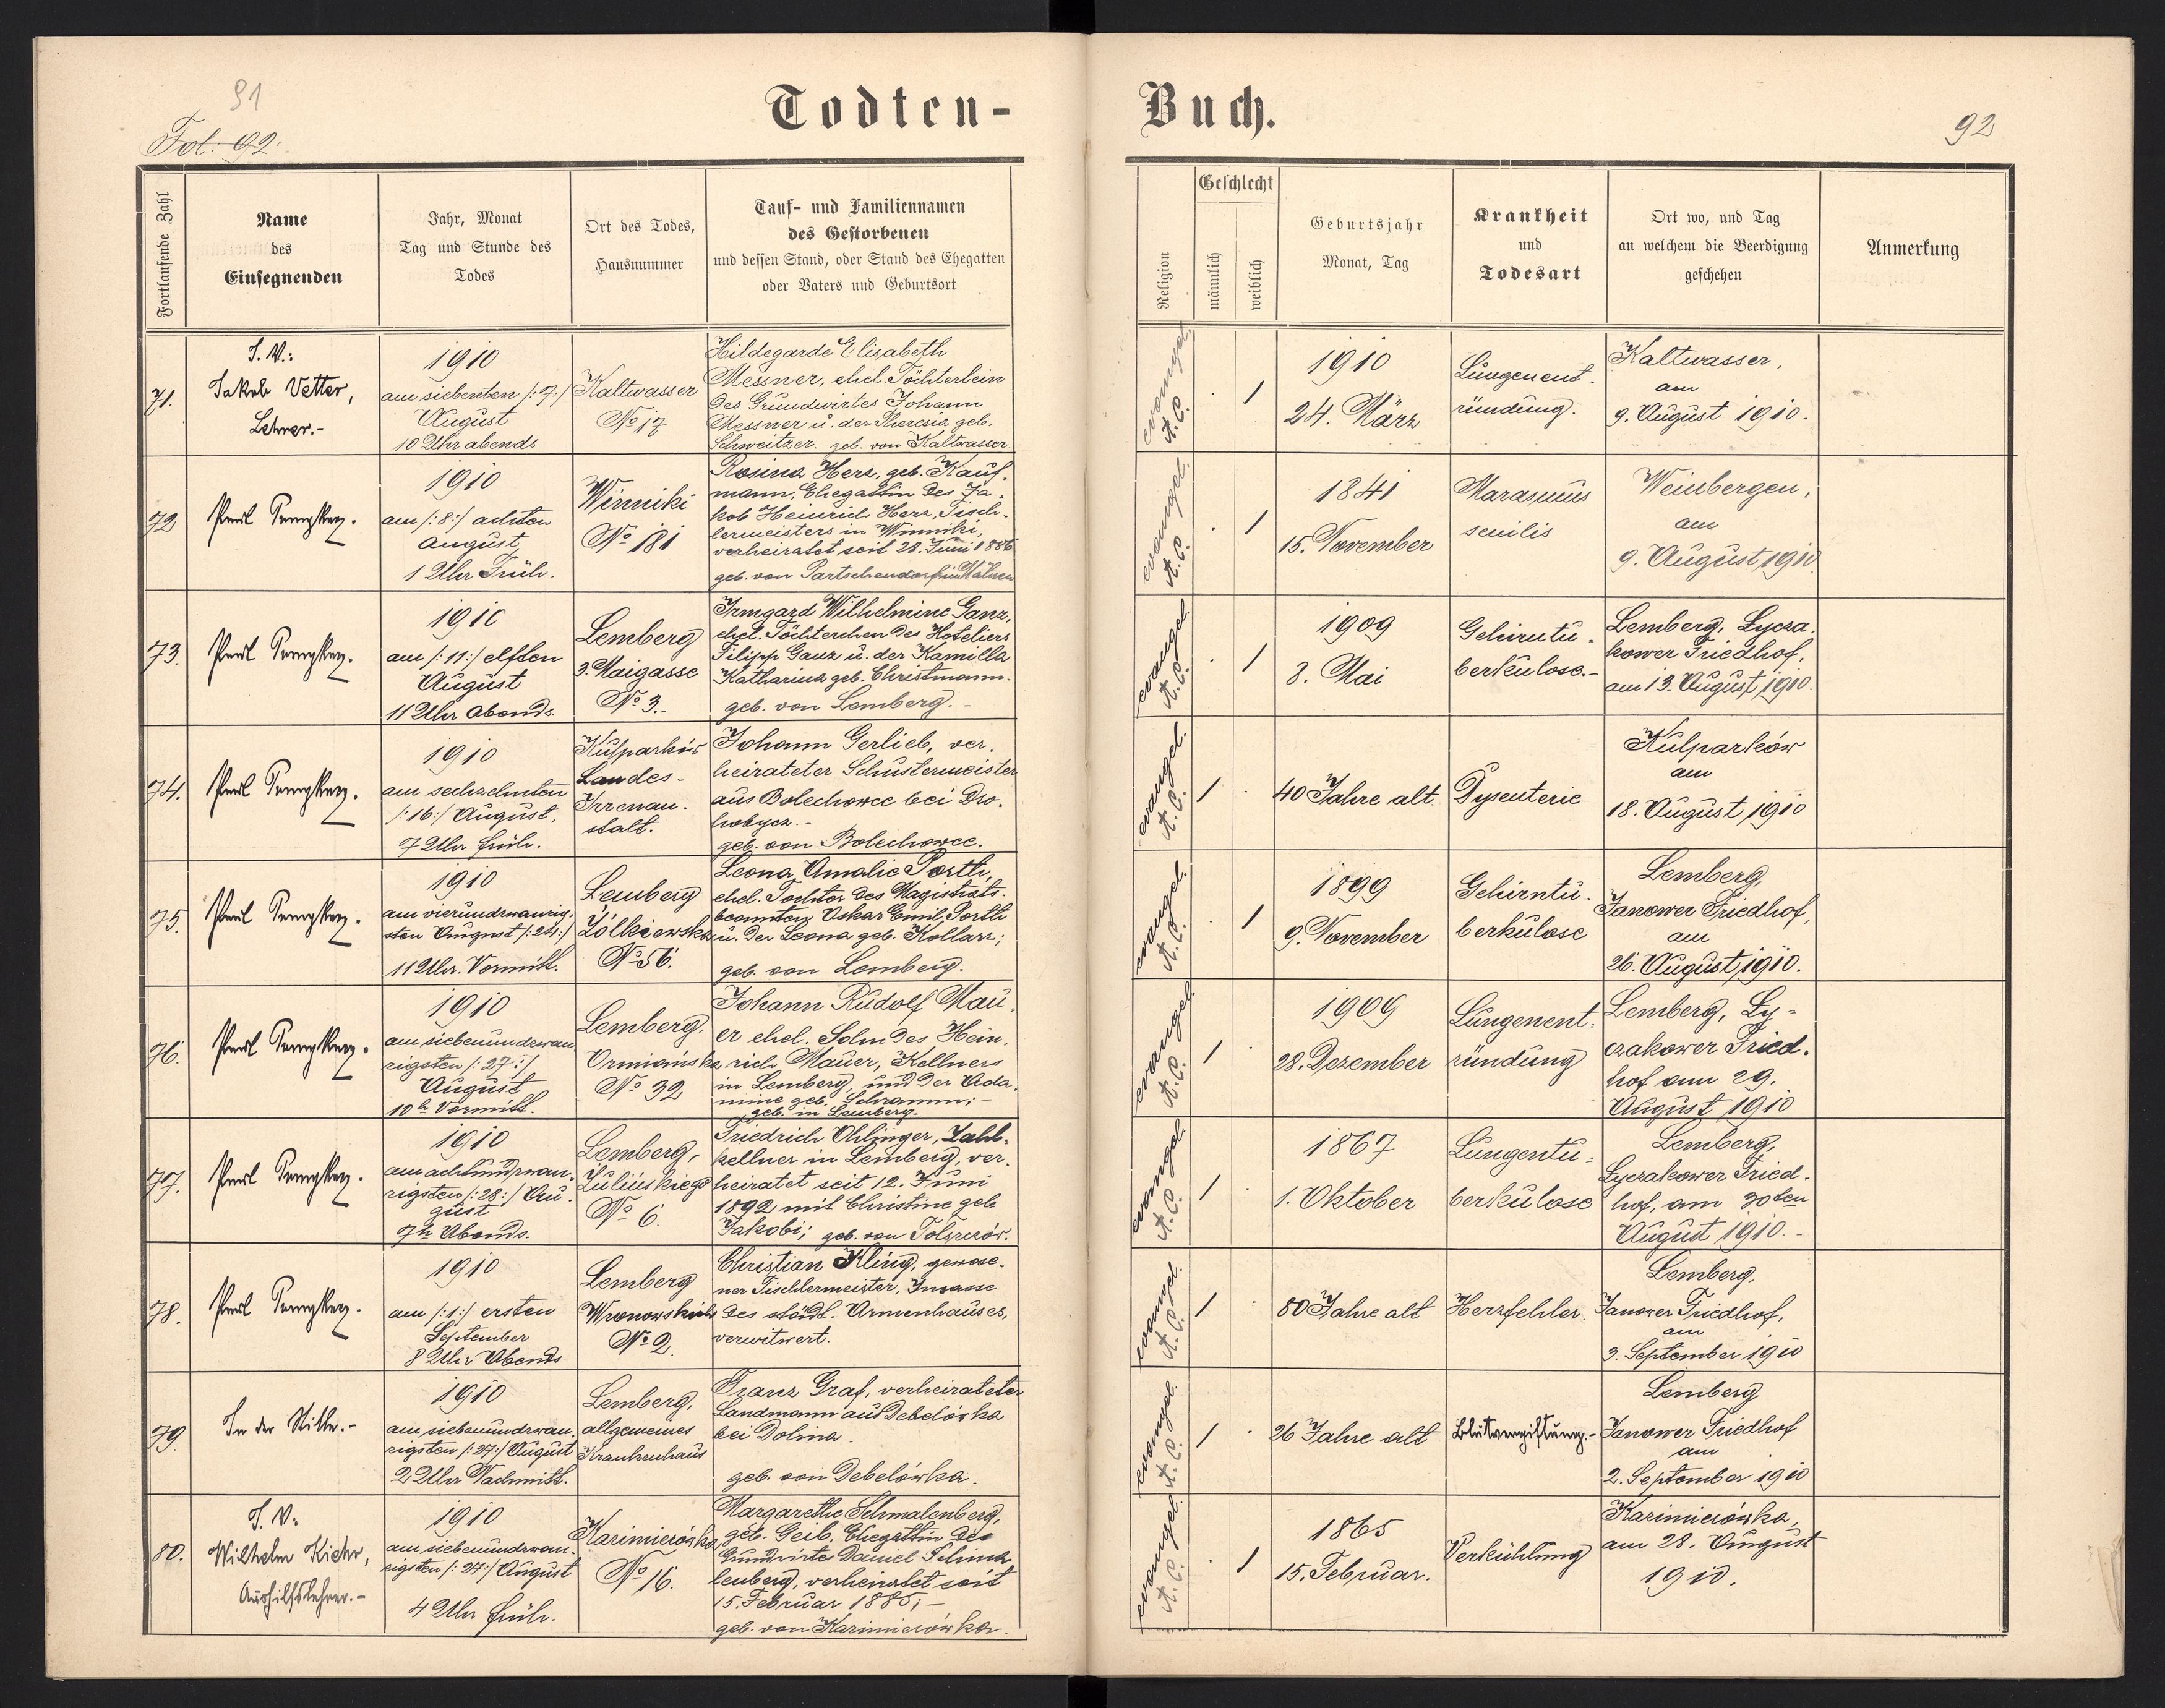 91
Fol. 92.
Todten-
Buch.
92
Fortlaufende Zahl
Name
des
Einsegnenden
Jahr, Monat
Tag und Stunde des
Todes
Ort des Todes,
Hausnummer
Tauf- und Familiennamen
des Gestorbenen
und dessen Stand, oder Stand des Ehegatten
oder Vaters und Geburtsort
Religion
Geschlecht
männlich
weiblich
Geburtsjahr
Monat, Tag
Krankheit
und
Todesart
Ort wo, und Tag
an welchem die Beerdigung
geschehen
Anmerkung
71.
I. V.:
Jakob Vetter,
Lehrer.-
1910
am siebenten /:7:/
August
10 Uhr abends
Kaltwasser
No 17
Hildegarde Elisabeth
Messner, ehel. Töchterlein
des Grundwirtes Johann
Messner u. der Theresia geb.
Schweitzer. geb. von Kaltwasser.
evangel.
A. C.
1
1910
24. März
Lungenent-
zündung.
Kaltwasser,
am
9. August 1910.
72
Paul
1910
am /:8:/ achten
August
1 Uhr Früh.
Winniki
No 181
Rosina Herz, geb. Kauf-
mann, Ehegattin des Ja-
kob Heinrich Herz, Tisch-
lermeisters in Winniki,
verheiratet seit 28. Juni 1886
geb. von Partschendorf in Mähren
evangel.
A. C.
1
1841
15. November
Marasmus
senilis
Weinbergen,
am
9. August 1910.
73.
Paul
1910
am /:11:/ elften
August
11 Uhr Abends.
Lemberg
3. Maigasse
No 3.-
Irmgard Wilhelmine Ganz,
ehel. Töchterchen des Hoteliers
Filipp Ganz u. der Kamilla
Katharina geb. Christmann.
geb. von Lemberg.-
evangel.
A. C.
1
1909
8. Mai
Gehirntu-
berkulose.-
Lemberg, Lycza-
kower Friedhof,
am 13. August 1910.
74.
Paul
1910
am sechzehnten
/:16:/ August,
7 Uhr früh.
Kulparków
Landes-
Irrenan-
stalt.
Johann Gerlieb, ver-
heirateter Schustermeister
aus Bolechowce bei Dro-
hobycz.-
geb. von Bolechowce.
evangel.
A. C.
1
40 Jahre alt.
Dysenterie
Kulparków
am
18. August 1910
75.
Paul
1910
am vierundzwanzig-
sten August /:24:/
11 Uhr Vormitt.
Lemberg
Żółkiewska
No 56.
Leona Amalie Porth,
ehel. Tochter des Magistrats-
beamten Oskar Emil Porth
u. der Leona geb. Kollarz;
geb. von Lemberg.
evangel.
A. C.
1
1899
9. November
Gehirntu-
berkulose
Lemberg,
Janower Friedhof,
am
26. August 1910.
76.
Paul
1910
am siebenundzwan-
zigsten /:27:/
August
10h Vormitt.
Lemberg,
Ormiańska
No 32
Johann Rudolf Mau-
er ehel. Sohn des Hein-
rich Mauer, Kellners
in Lemberg, und der Ada-
mine geb. Schramm;-
geb. in Lemberg.
evangel.
A. C.
1
1909
28. Dezember
Lungenent-
zündung
Lemberg, Ly-
czakower Fried-
hof am 29.
August 1910
77.
Paul
1910
am achtundzwan-
zigsten /:28:/ Au-
gust
7h Abends.
Lemberg,
Zulińskiego
No 6.
Friedrich Ohlinger, Zahl-
kellner in Lemberg, ver-
heiratet seit 12. Juni
1892 mit Christine geb.
Jakobi; geb. von Tolszczów.
evangel.
A. C.
1
1867
1. Oktober
Lungentu-
berkulose
Lemberg,
Lyczakower Fried-
hof, am 30ten
August 1910.-
78.
Paul
1910
am /:1:/ ersten
September
8 Uhr Abends
Lemberg
Wronowskich
No 2.
Christian Kling, gewese-
ner Tischlermeister, Insasse
des städt. Armenhauses,
verwitwert.
evangel.
A. C.
1
80 Jahre alt
Herzfehler.
Lemberg,
Janower Friedhof,
am
3. September 1910
79.
In der Stille.-
1910
am siebenundzwan-
zigsten /:27:/ August
2 Uhr Nachmitt.
Lemberg,
allgemeines
Krankenhaus
Franz Graf, verheirateter
Landmann aus Debelówka
bei Dolina.
geb. von Debelówka.
evangel.
A. C.
1
26 Jahre alt
Blutvergiftung.-
Lemberg
Janower Friedhof
am
2. September 1910
80.
I. V.:
Wilhelm Kiehr,
Aushilfslehrer.-
1910
am siebenundzwan-
zigsten /:27:/ August
4 Uhr früh.
Kazimierówka
No 16.
Margarethe Schmalenberg,
geb. Geib, Ehegattin des
Grundwirtes Daniel Schma-
lenberg, verheiratet seit
15. Februar 1885;-
geb. von Kazimierówka.
evangel.
A. C.
1
1865
15. Februar.
Verkühlung
Kazimierówka,
am 28. August
1910.